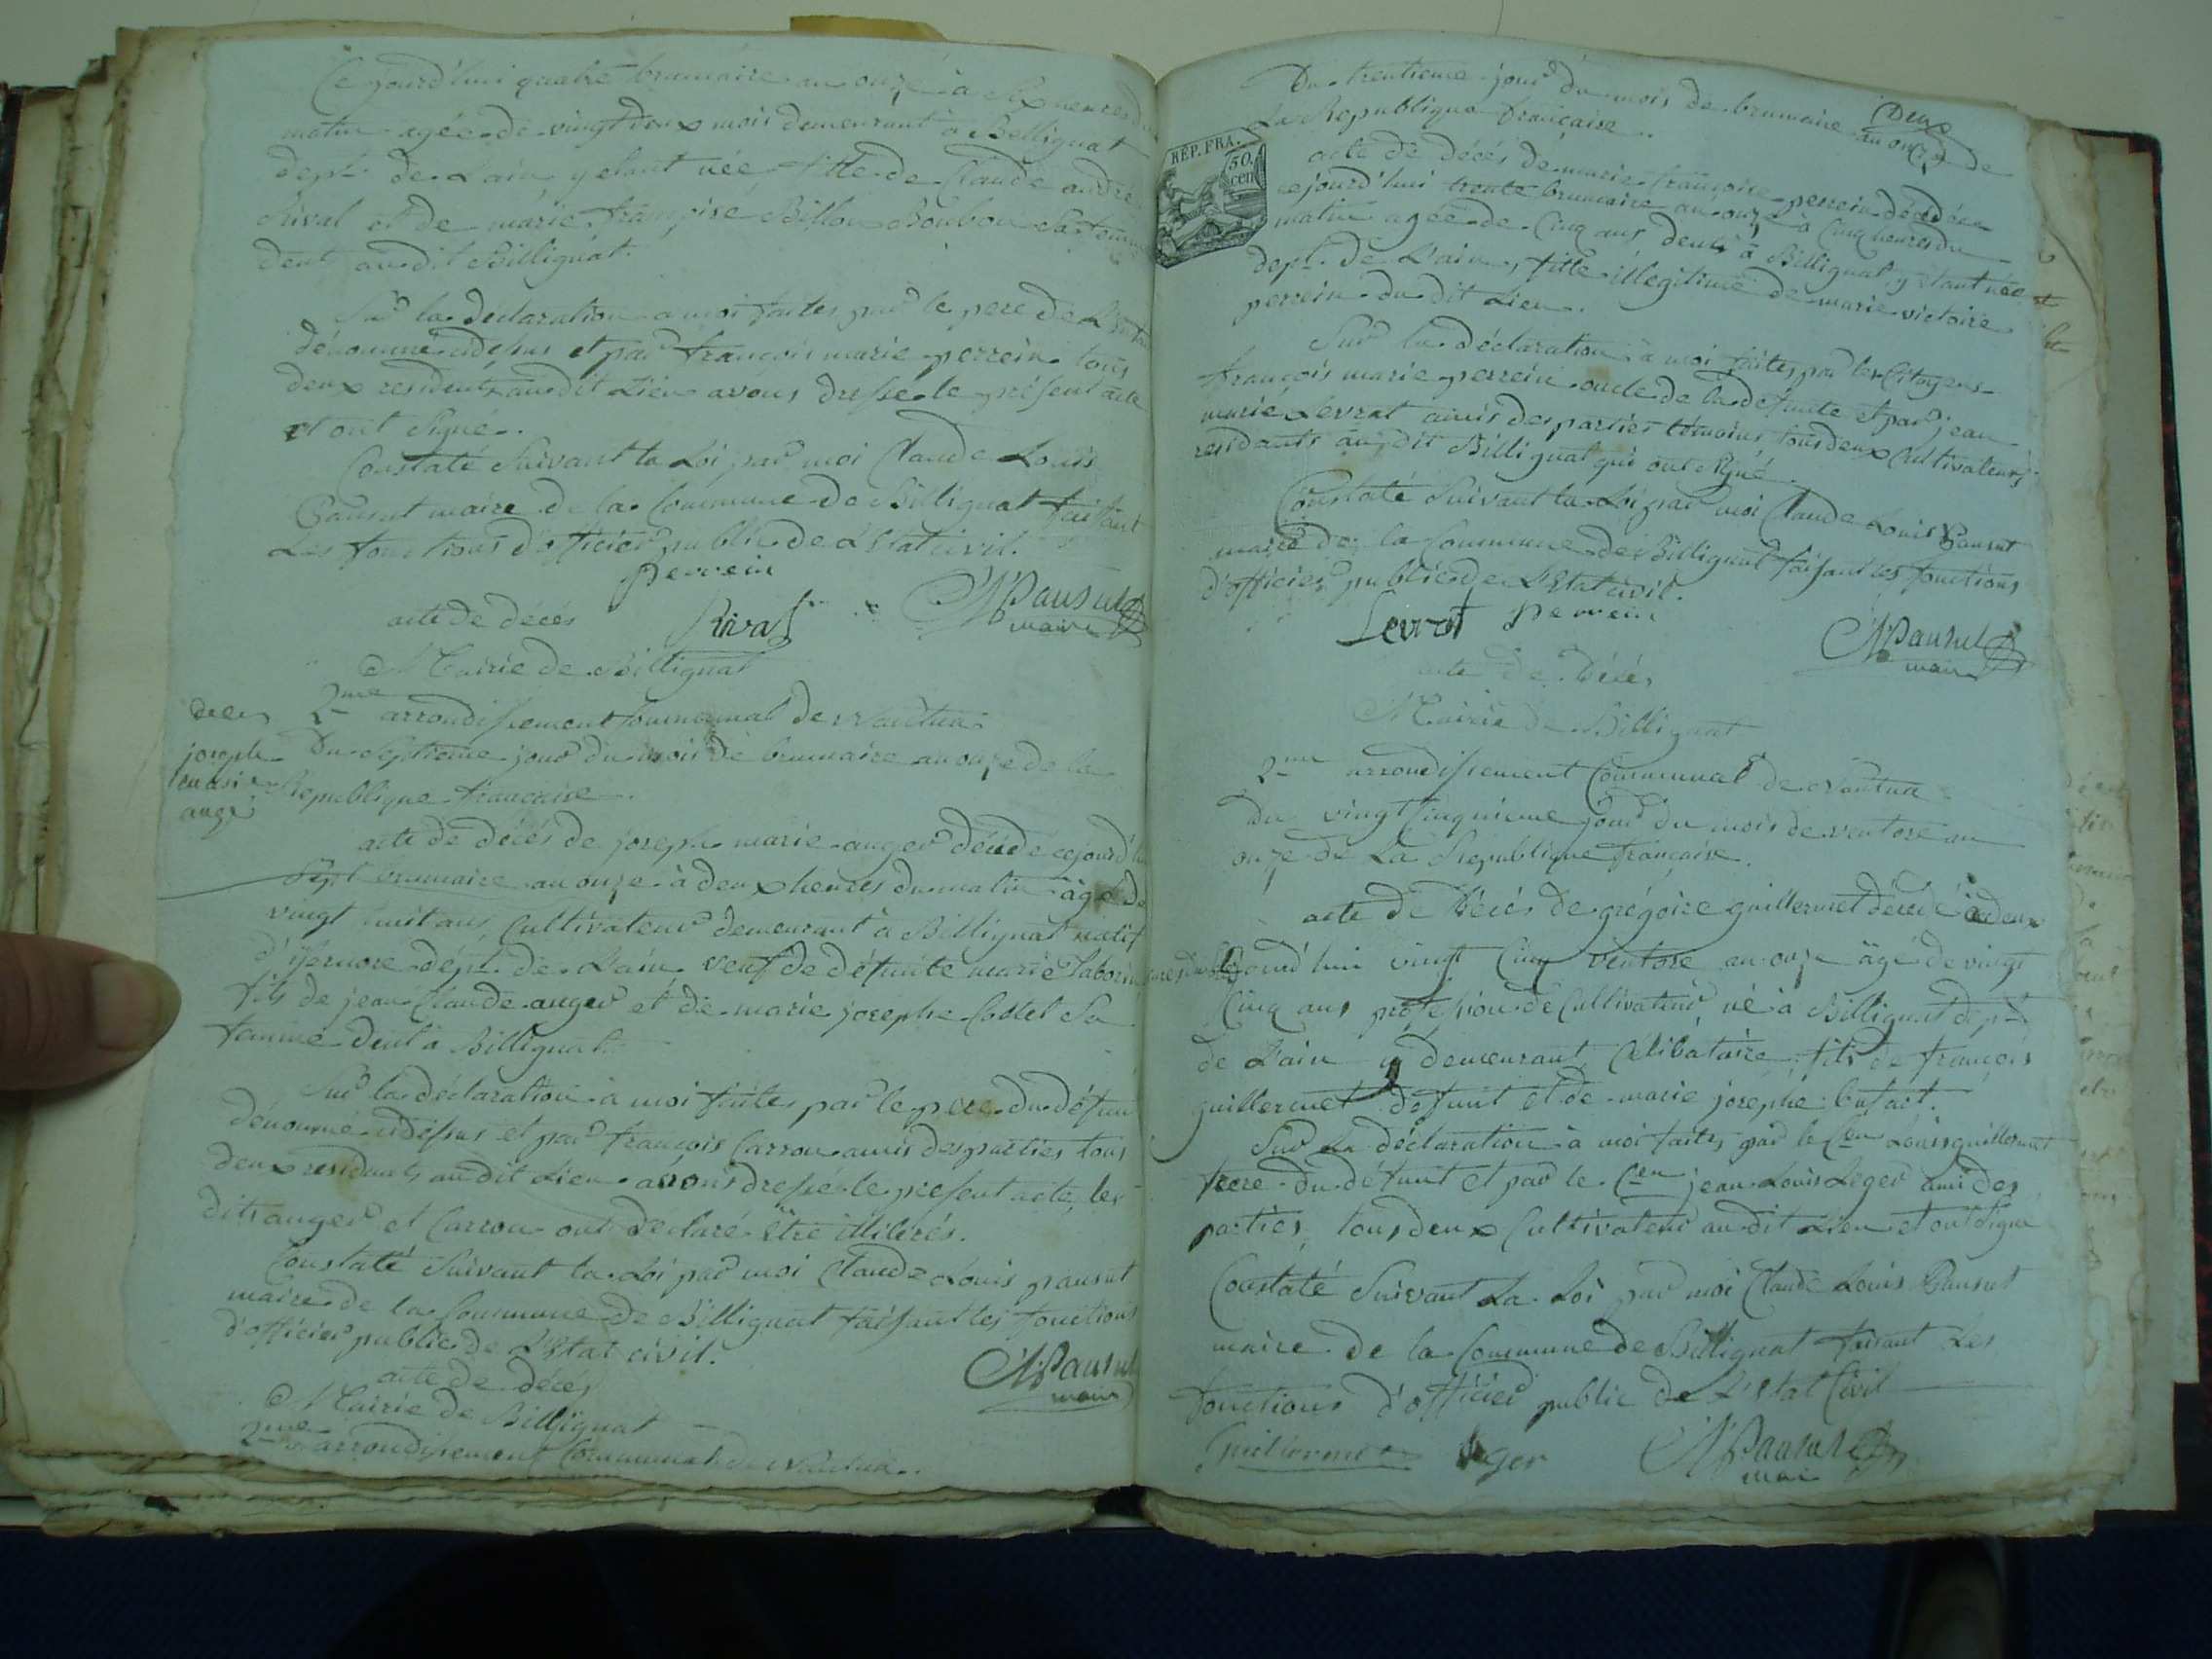 Ce jourd'hui quatre brumaire an onze à six heures du
matin agée de vingt deux mois demeurant à Billignat
dept. de Lain, y etant née fille de Claude andré
Rival et de marie françoise Billon Boubou Sa femme
dent. au dit Billignat.
Sur la déclaration a moi faites par le pere de L'enfant
dénommé cidessus et par françois marie perrein tous
deux residents au dit Lieu avons dressé le présent acte
et ont Signé.
Constaté Suivant la Loi par moi Claude Louis
Pansut maire de la Commune de Billignat faisant
Les fonctions d'officier public de L'Etat civil.
perrein
Rival
Pansut
maire
acte de décés
Mairie de Billignat
2me arrondissement Communal de Nantua
deces
joseph
marie
auger
Du Septieme jour du mois de brumaire an onze de la
Republique française.
acte de décés de joseph marie auger décédé cejourd'hui
Sept brumaire an onze à deux heures du matin âgé de
vingt huit ans, Cultivateur demeurant à Billignat natif
d'izernore dépt. de Lain, veuf de défunte marie
fils de jean Claude auger et de marie josephe Sa
femme dent. à Billignat.
Sur la déclaration à moi faites par le pere du défunt
dénommé cidessus et par françois Carron amis des parties tous
deux residents au dit Lieu avons dressé le present acte, les
dits auger et Carron ont declaré être illiterés.
Constaté Suivant la Loi par moi Claude Louis pansut
maire de la Commune de Billignat faisant les fonctions
d'officier public de L'Etat civil.
Pansut
maire
acte de décés
Mairie de Billignat
2me arrondissement Communal de Nantua.
Deux
Du trentieme jour du mois de brumaire an onze de
La Republique française.
REP. FRA.
50.
cen
acte de décés de marie françoise perrein décédée
cejourd'hui trente brumaire an onze à Cinq heures du
matin agée de Cinq ans, dent. à Billignat, y étant née
dept. de Lain, fille illégitime de marie victoire
perrein du dit Lieu.
Sur la déclaration à moi faites par les Citoyens
françois marie perrein oncle de la defunte et par jean
marie Levrat amis des parties témoins tous deux Cultivateurs
residants au dit Billignat qui ont Signé.
Constaté Suivant la Loi par moi Claude Louis Pansut
maire de la Commune de Billignat faisant les fonctions
d'officier public de L'Etat civil.
Levrat perrein
Pansut
maire
acte de Décés
Mairie de Billignat
2me arrondissement Communal de Nantua
Du vingt Cinquieme jour du mois de ventose an
onze de La Republique française.
acte de Décés de grégoire guillermet décédé à deux
heures du cejourd'hui vingt Cinq ventose an onze âgé de vingt
Cinq ans profession de Cultivateur, né à Billignat dept.
de Lain y demeurant, Célibataire, fils de françois
guillermet défunt et de marie josephe bussact.
Sur La déclaration à moi faites par le Cen Louis guillermet
frere du défunt et par le Cen jean Louis Leger ami des
parties, tous deux Cultivateur au dit Lieu et ont Signé
Constaté Suivant La Loi par moi Claude Louis Pansut
maire de la Commune de Billignat faisant Les
fonctions d'officier public de L'Etat Civil
Guillermet Leger Pansut
maire